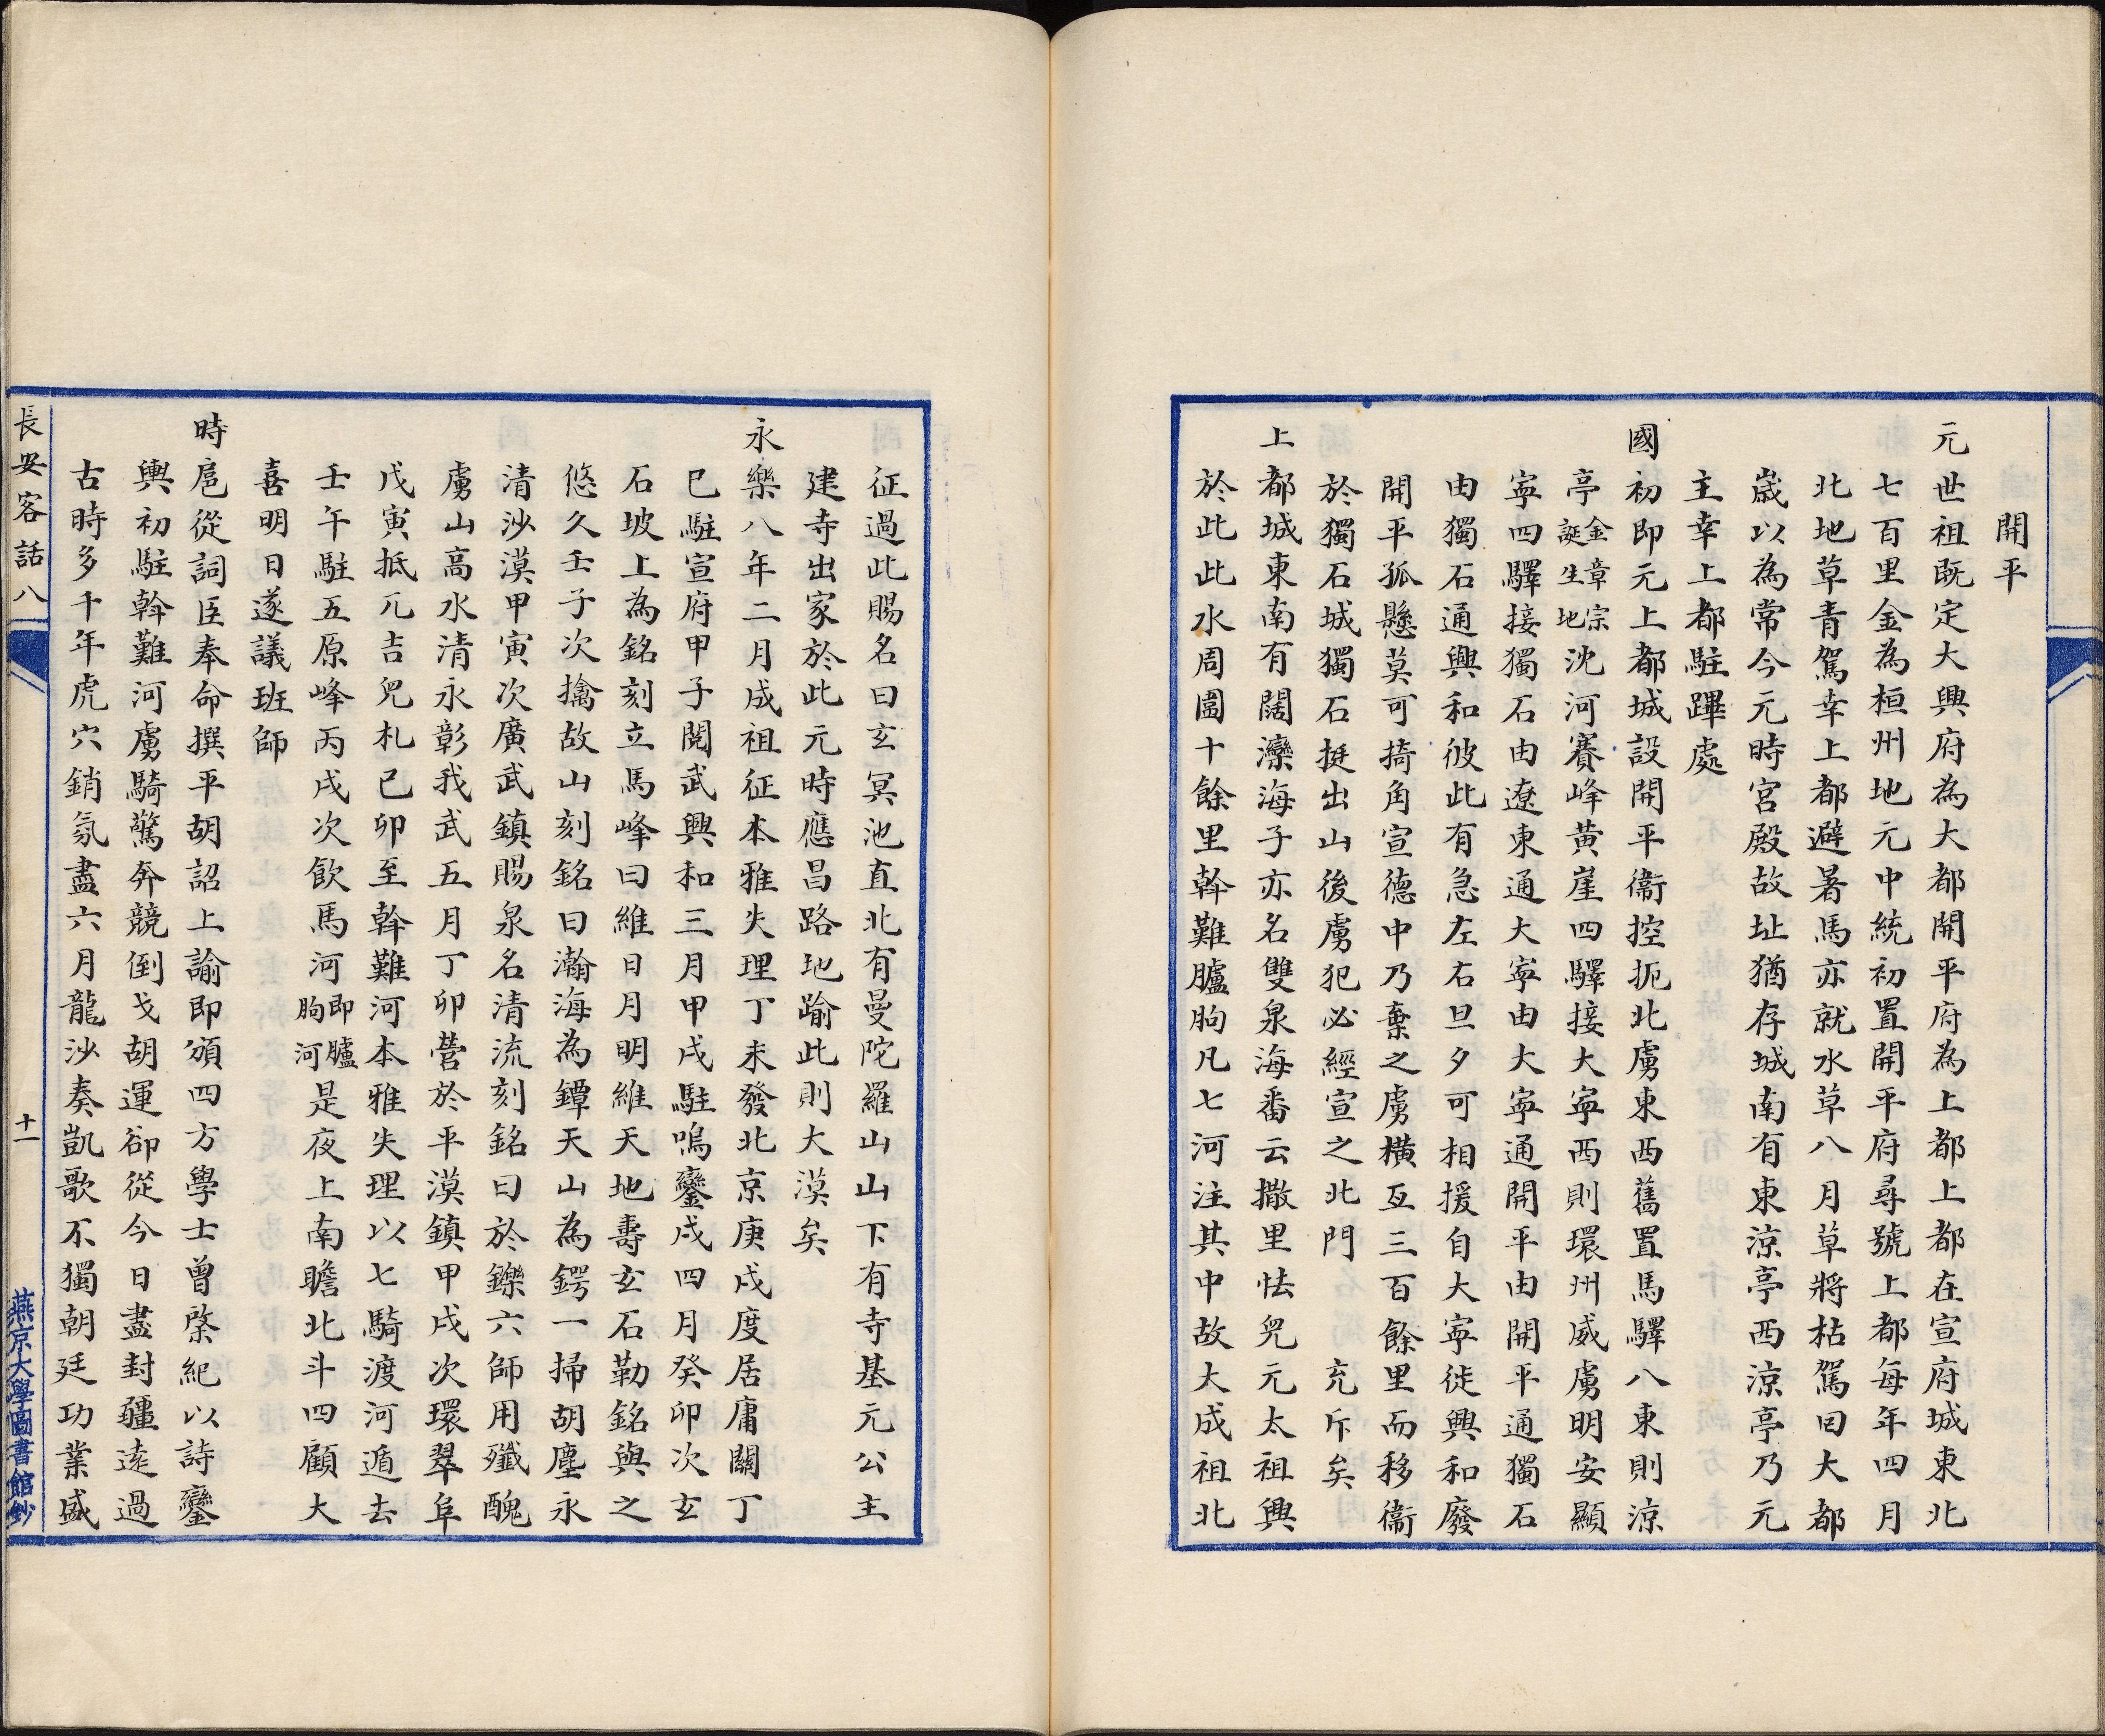 開平
元世祖既定大興府為大都開平府為上都上都在宣府城東北
七百里金為桓州地元中統初置開平府尋號上都每年四月
北地草青駕幸上都避暑馬亦就水草八月草將枯駕回大都
歲以為常今元時宮殿故址猶存城南有東涼亭西涼亭乃元
主幸上都駐蹕處
國初即元上都城設開平衛控扼北虜東西舊置馬驛八東則涼
亭金章宗誕生地沈河賽峰黃崖四驛接大寧西則環州威虜明安顯
寧四驛接獨石由遼東通大寧由大寧通開平由開平通獨石
由獨石通興和彼此有急左右旦夕可相援自大寧徙興和廢
開平孤懸莫可掎角宣德中乃棄之虜橫亙三百餘里而移衛
於獨石城獨石挺出山後虜犯必經宣之北門 充斥矣
上都城東南有闊灤海子亦名雙泉海番云撒里怯兒元太祖興
於此此水周圍十餘里斡難臚朐凡七河注其中故大成祖北
征過此賜名曰玄冥池直北有曼陀羅山山下有寺基元公主
建寺出家於此元時應昌路地踰此則大漠矣
永樂八年二月成祖征本雅失理丁未發北京庚戌度居庸關丁
巳駐宣府甲子閱武興和三月甲戌駐鳴鑾戌四月癸卯次玄
石坡上為銘刻立馬峰曰維日月明維天地壽玄石勒銘與之
悠久壬子次擒故山刻銘曰瀚海為鐔天山為鍔一掃胡塵永
清沙漠甲寅次廣武鎮賜泉名清流刻銘曰於鑠六師用殲醜
虜山高水清永彰我武五月丁卯營於平漠鎮甲戌次環翠阜
戊寅抵兀吉兒札己卯至斡難河本雅失理以七騎渡河遁去
壬午駐五原峰丙戌次飲馬河即臚朐河是夜上南瞻北斗四顧大
喜明日遂議班師
時扈從詞臣奉命撰平胡詔上諭即頒四方學士曾棨紀以詩鑾
輿初駐斡難河虜騎驚奔競倒戈胡運卻從今日盡封疆遠過
古時多千年虎穴銷氛盡六月龍沙奏凱歌不獨朝廷功業盛
長安客話八
十一
燕京大學圖書館鈔